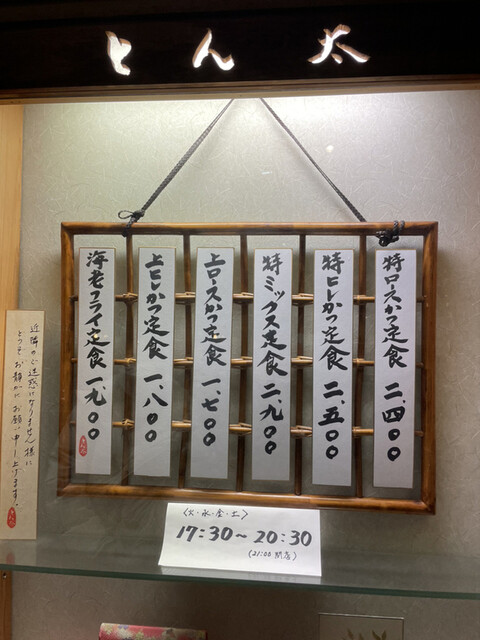 とん太
特ロースかつ定食 二、四〇〇
特ヒレかつ定食 二、五〇〇
特ミックス定食 二、九〇〇
上ロースかつ定食 一、七〇〇
上ヒレかつ定食 一、八〇〇
海老フライ定食 一、九〇〇
近隣のご迷惑になりません様に
どうぞお静かにお願い申し上げます。
〈火・水・金・土〉
17:30〜20:30
(21:00 閉店)